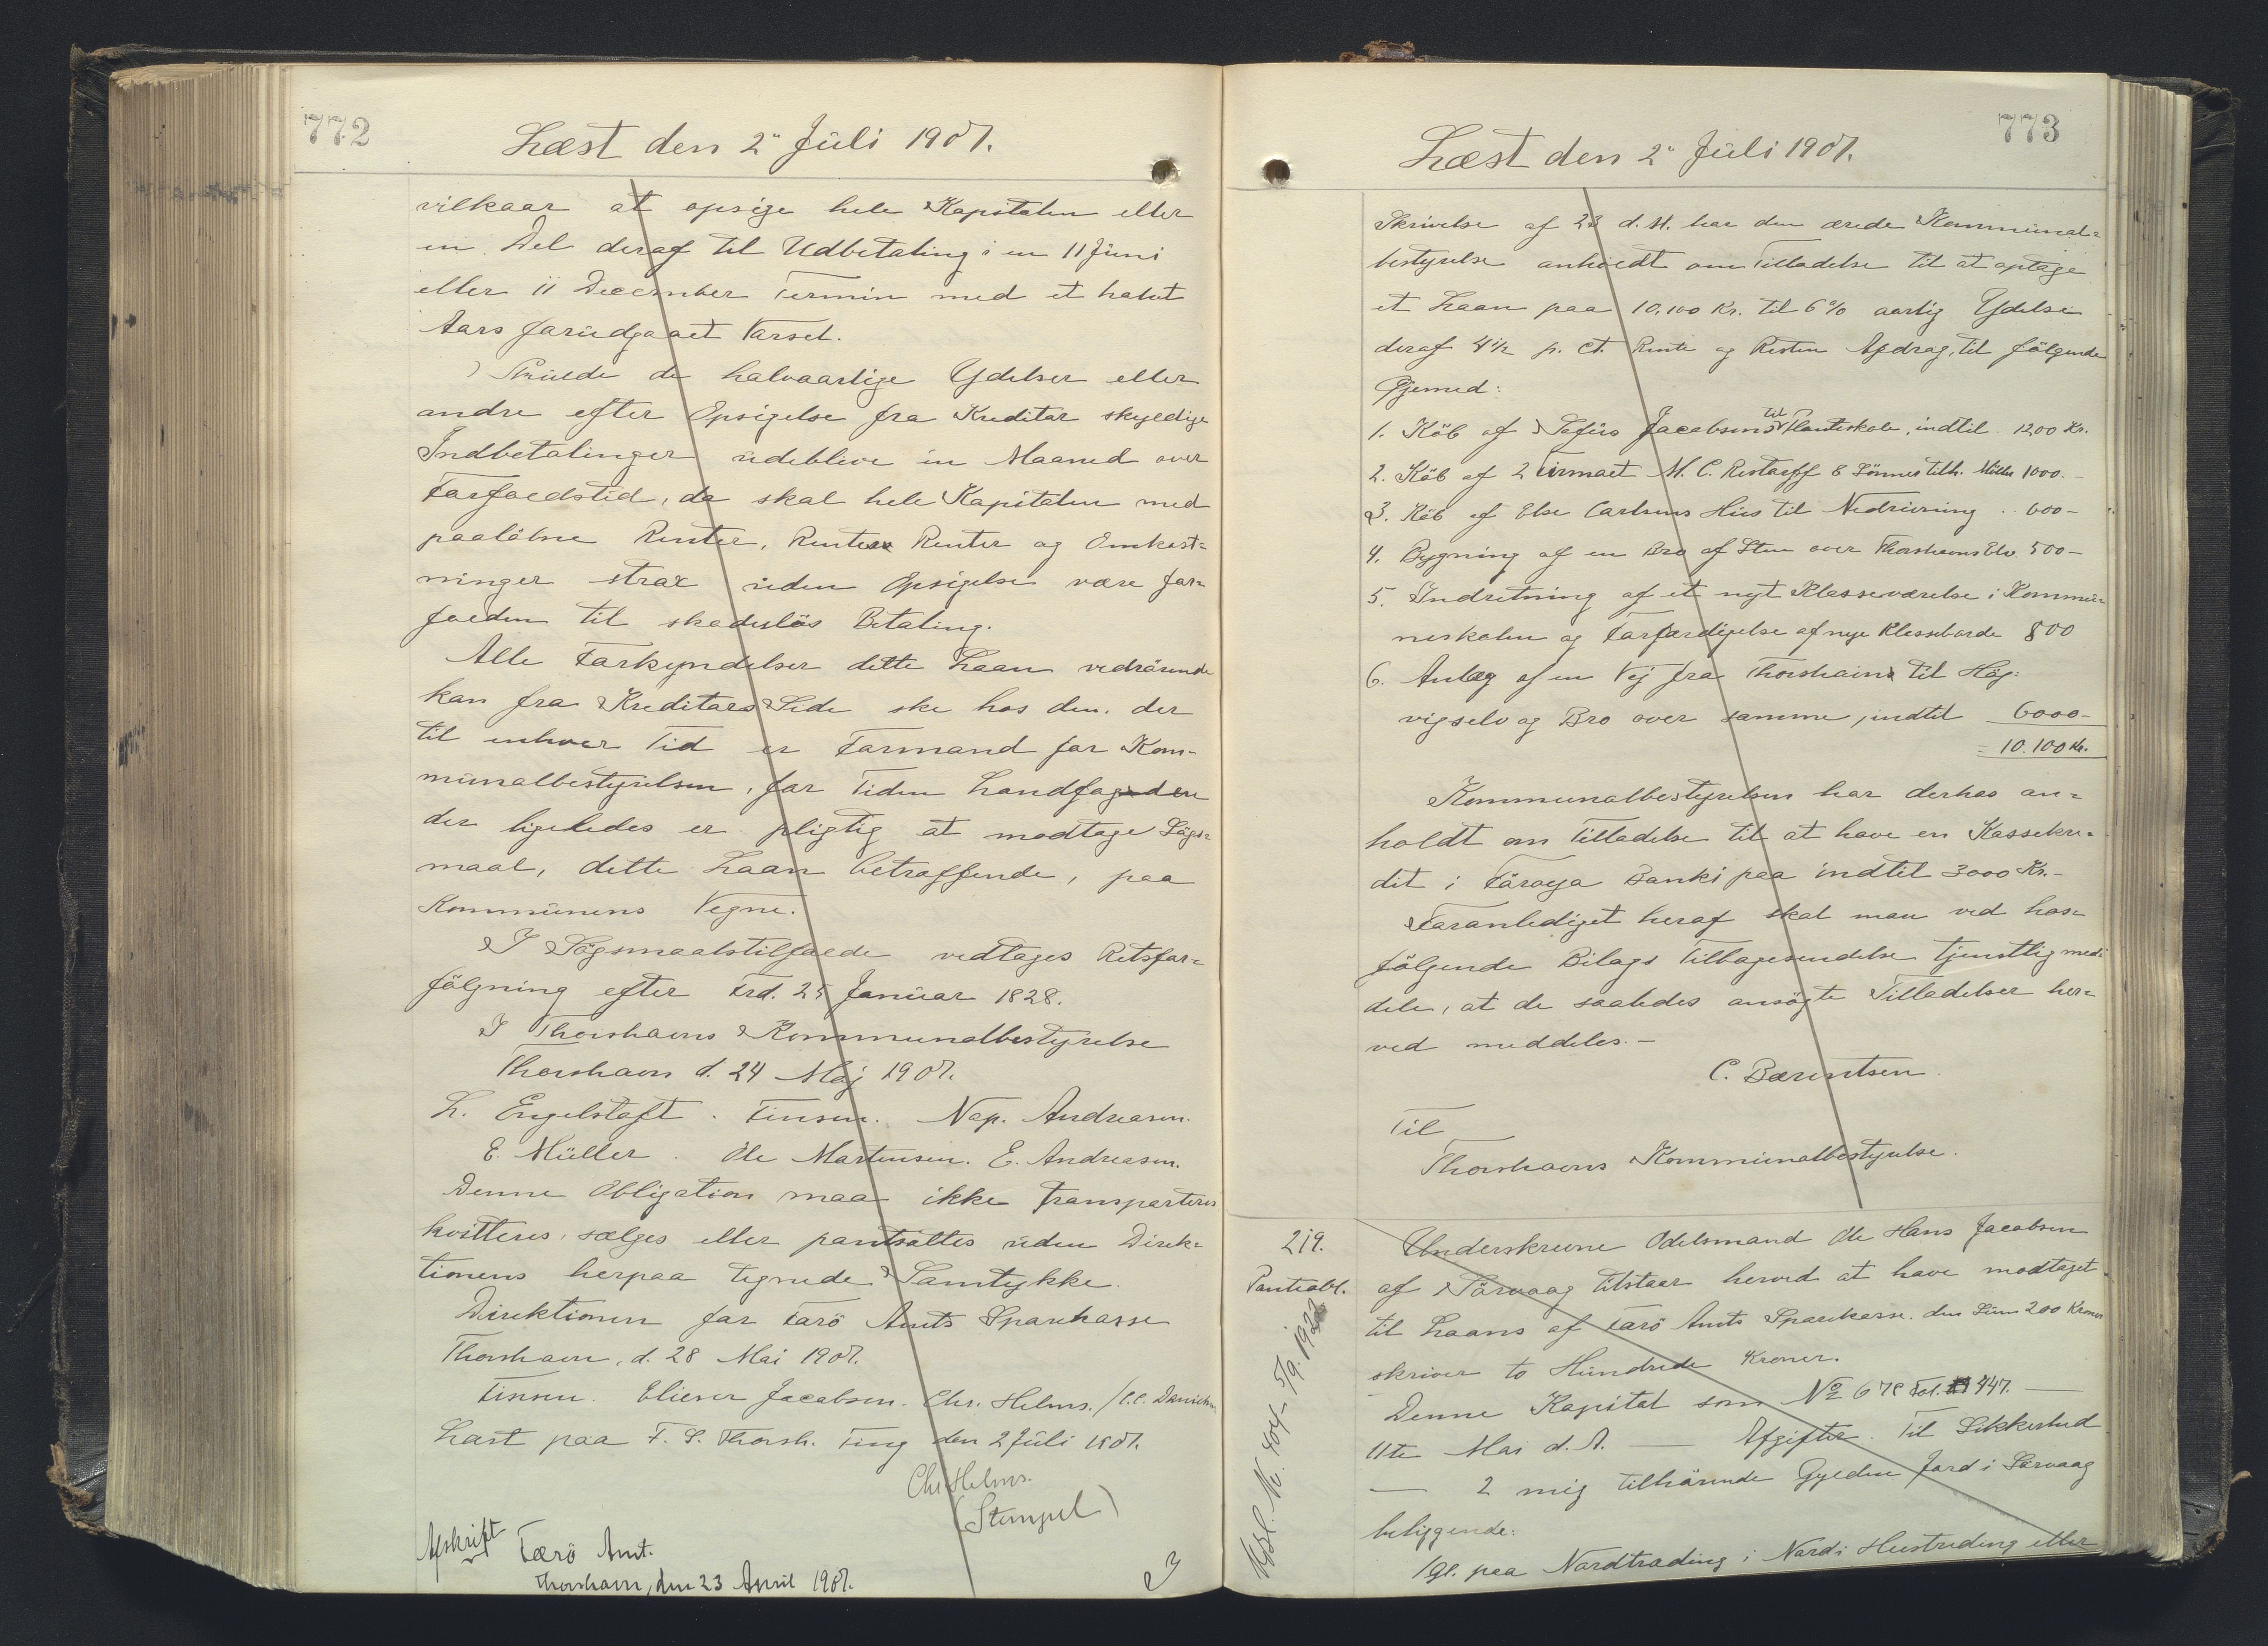 772
Læst den 2" Júli 1907.
vilkaar at opsige hele Kapitalen eller
en Del deraf til Udbetaling i en 11 Júni
eller 11 December Termin med et halvt
Aars forúdgaaet Varsel.
Skúlde de halvaarlige Ydelser eller
andre efter Opsigelse fra Kreditor skyldige
Indbetalinger údeblive en Maaned over
Forfaldstid, da skal hele Kapitalen med
paaløbne Renter, Renters Renter og Omkost=
ninger strax úden Opsigelse være for=
falden til skadesløs Betaling.
Alle Forkyndelser dette Laan vedrørende
kan fra Kreditors Side ske hos den, der
til enhver Tid er Formand for Kom-
múnalbestyrelsen, for Tiden Landfogden
der ligeledes er pligtig at modtage Søgs=
maal, dette Laan betræffende, paa
Kommúnens Vegne.
I Søgsmaalstilfælde vedtages Retsfor=
følgning efter Frd. 25 Janúar 1828.
I Thorshavns Kommunalbestyrelse
Thorshavn d. 24 Maj 1907.
L. Engelstoft. Finsen. Nap. Andreasen.
E. Müller. Ole Mortensen. E. Andreasen.
Denne Obligation maa ikke transporteres
kvitteres, sælges eller pantsættes úden Direk=
tionens herpaa tegnede Samtykke.
Direktionen for Færö Amts Sparekasse
Thorshavn, d. 28 Mai 1907.
Finsen. Elieser Jacobsen. Chr. Helms. /C.C. Danielsen
Læst paa F. S. Thorsh. Ting den 2 Júli 1907.
Chr Helms.
(Stempel)
Afskrift Færö Amt.
Thorshavn, den 23 April 1907.
I
773
Læst den 2" Júli 1907.
Skrivelse af 23 d. M. har den ærede Kommúnal=
bestyrelse anholdt om Tilladelse til at optage
et Laan paa 10.100 Kr. til 6% aarlig Ydelse
deraf 4½ p. Ct. Rente og Resten Afdrag, til følgende
Øjemed:
1. Köb af Sofús Jacobsens til Planteskole, indtil 1200 Kr.
2. Köb af 2 Firmaet M. C. Restorff & Sönners tilh. 1000.-
3. Köb af Else Carlsens Hús til Nedrivning .. 600-
4. Bygning af en Bro af Sten over Thorshavns Elv. 500-
5. Indretning af et nyt Klasseværelse i Kommú=
neskolen og Forfærdigelse af nye Klasseborde 800
6. Anlæg af en Vej fra Thorshavn til Höj=
vigselv og Bro over samme, indtil 6000-
= 10.100 Kr.
Kommunalbestyrelsen har derhos an=
holdt om Tilladelse til at have en Kassekre=
dit i Föroya Banki paa indtil 3000 Kr.-
Foranlediget heraf skal man ved hos=
følgende Bilags Tilbagesendelse tjenstlig med=
dele, at de saaledes ansøgte Tilladelser her=
ved meddeles.-
C. Bærentsen.
Til
Thorshavns Kommúnalbestyrelse.
219.
Pantiobl.
Udsl. Nr. 404- 5/9. 1922
Underskrevne Odelsmand Ole Hans Jacobsen
af Sörvaag tilstaar herved at have modtaget
til Laans af Færö Amts Sparekasse. den Súm 200 Kroner
skriver to Húndrede Kroner.
Denne Kapital som № 678 Fol. 447. —
11te Mai d. A. — Afgifter. Til Sikkerhed
— 2 mig tilhørende Gylden Jord i Sørvaag
beliggende:
1 Gl. paa Nordtrøding i Nordi Hustrøding eller